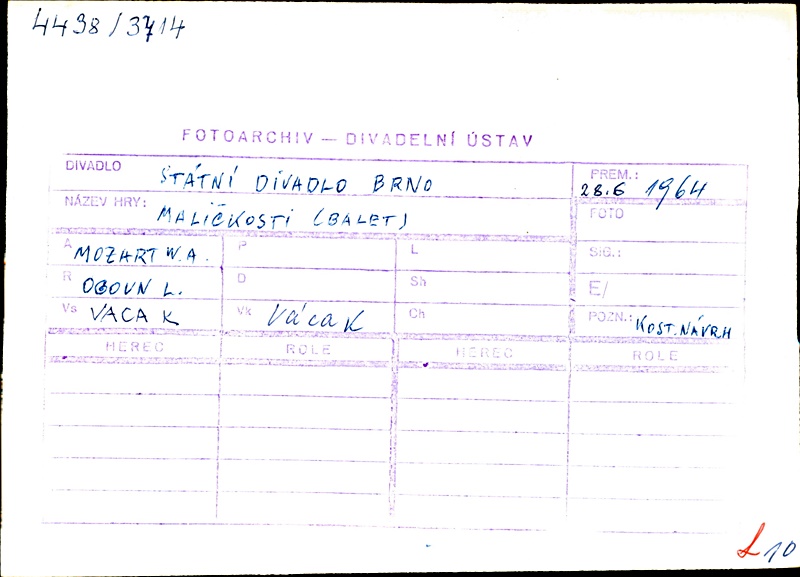 4498/3714
FOTOARCHIV — DIVADELNÍ ÚSTAV
DIVADLO STÁTNÍ DIVADLO BRNO
PREM.: 28.6 1964
NÁZEV HRY: MALIČKOSTI (BALET)
FOTO
A MOZART W.A. P L SIG.:
R OGOUN L. D Sh E/
Vs VACA K Vk Váca K Ch POZN.: KOST. NÁVRH
HEREC ROLE HEREC ROLE
L 10